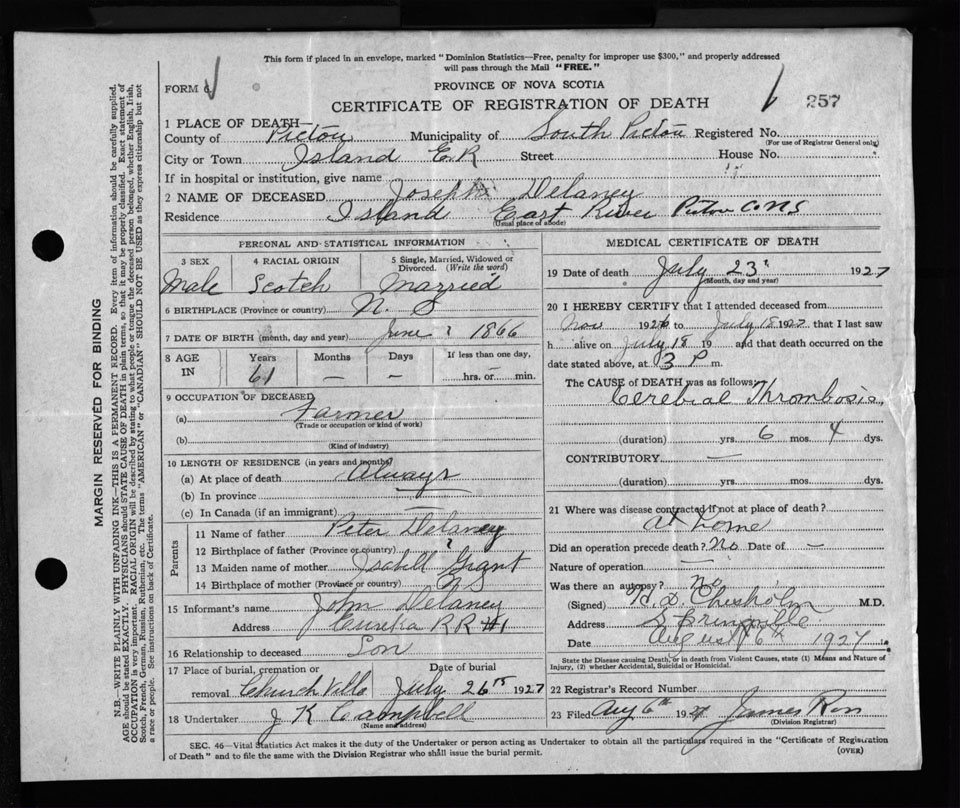 This form if placed in an envelope, marked "Dominion Statistics—Free, penalty for improper use $300," and properly addressed
will pass through the Mail "FREE."
FORM
PROVINCE OF NOVA SCOTIA
CERTIFICATE OF REGISTRATION OF DEATH
257
1 PLACE OF DEATH—
County of Pictou Municipality of South Pictou Registered No.
(For use of Registrar General only)
City or Town Island E R Street House No.
If in hospital or institution, give name
2 NAME OF DECEASED Joseph Delaney
Residence Island East River Pictou Co NS
(Usual place of abode)
PERSONAL AND STATISTICAL INFORMATION
3 SEX 4 RACIAL ORIGIN 5 Single, Married, Widowed or Divorced. (Write the word)
Male Scotch Married
6 BIRTHPLACE (Province or country) N. S
7 DATE OF BIRTH (month, day and year) June ? 1866
8 AGE IN Years Months Days If less than one day,
61 — — hrs. or min.
9 OCCUPATION OF DECEASED
(a) Farmer
(Trade or occupation or kind of work)
(b)
(Kind of industry)
10 LENGTH OF RESIDENCE (in years and months)
(a) At place of death always
(b) In province
(c) In Canada (if an immigrant) —
Parents
11 Name of father Peter Delaney
12 Birthplace of father (Province or country) ?
13 Maiden name of mother Isabell Grant
14 Birthplace of mother (Province or country) N S
15 Informant's name John Delaney
Address Eureka R R #1
16 Relationship to deceased Son
17 Place of burial, cremation or Date of burial
removal Churchville July 26th 1927
18 Undertaker J K Campbell
(Name and address)
MEDICAL CERTIFICATE OF DEATH
19 Date of death July 23rd 1927
(Month, day and year)
20 I HEREBY CERTIFY that I attended deceased from
Nov 1926 to July 18 1927 that I last saw
h alive on July 18 19 and that death occurred on the
date stated above, at 3 P m.
The CAUSE of DEATH was as follows:
Cerebral Thrombosis,
(duration) yrs. 6 mos. 4 dys.
CONTRIBUTORY —
(duration) yrs. mos. dys.
21 Where was disease contracted if not at place of death?
at home
Did an operation precede death? No Date of —
Nature of operation —
Was there an autopsy? no
(Signed) H. D. Chisholm M.D.
Address Springville
Date August 6th 1927
State the Disease causing Death, or in death from Violent Causes, state (1) Means and Nature of
Injury, (2) whether Accidental, Suicidal or Homicidal.
22 Registrar's Record Number
23 Filed Aug 6th 1927 James Ross
(Division Registrar)
SEC. 46—Vital Statistics Act makes it the duty of the Undertaker or person acting as Undertaker to obtain all the particulars required in the "Certificate of Registration
of Death" and to file the same with the Division Registrar who shall issue the burial permit.
(OVER)
MARGIN RESERVED FOR BINDING
N.B.—WRITE PLAINLY WITH UNFADING INK—THIS IS A PERMANENT RECORD. Every item of information should be carefully supplied.
AGE should be stated EXACTLY. PHYSICIANS should STATE CAUSE OF DEATH in plain terms, so that it may be properly classified. Exact statement of
OCCUPATION is very important. RACIAL ORIGIN will be described by stating to what people or tongue the deceased person belonged, whether English, Irish,
Scotch, French, German, Russian, Ruthenian, etc. The terms "AMERICAN" or "CANADIAN" SHOULD NOT BE USED as they express citizenship but not
a race or people. See instructions on back of Certificate.